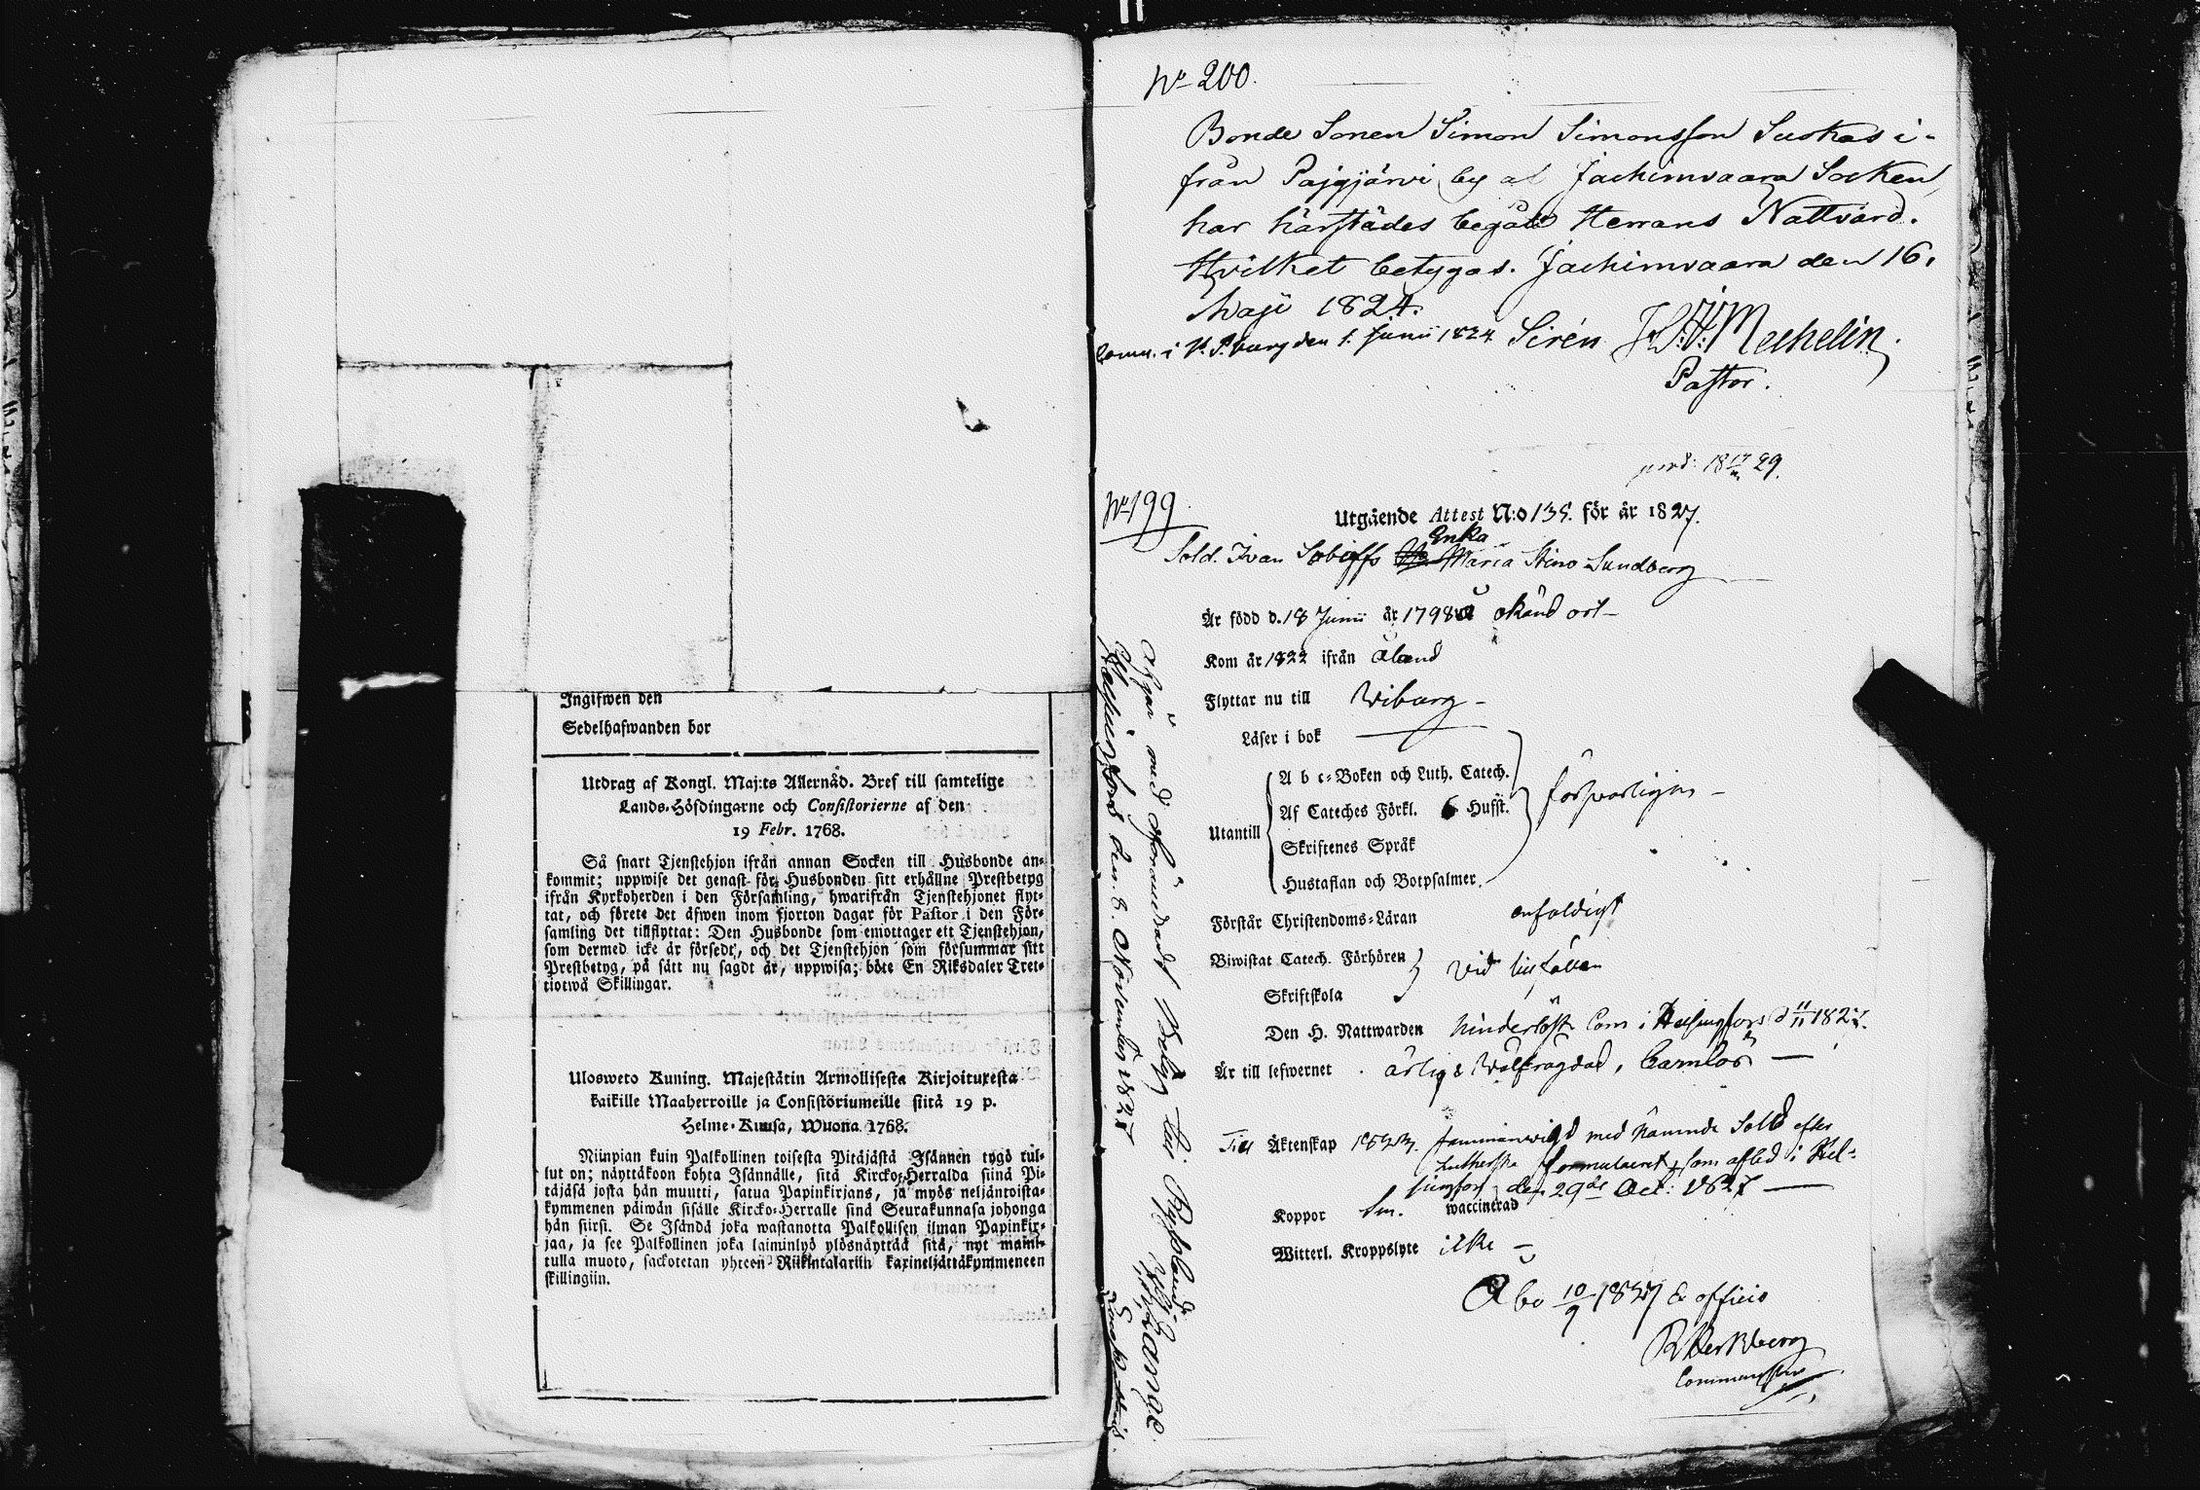 Ingifwen den
Sedelhafwanden bor
Utdrag af Kongl. Maj:ts Allernåd. Bref till samtelige
Lands-Höfdingarne och Consistorierne af den
19 Febr. 1768.
Så snart Tjenstehjon ifrån annan Socken till Husbonde an-
kommit; uppwise det genast för Husbonden sitt erhållne Prestbetyg
ifrån Kyrkoherden i den Församling, hwarifrån Tjenstehjonet flyt-
tat, och förete det äfwen inom fjorton dagar för Pastor i den För-
samling det tillflyttat: Den Husbonde som emottager ett Tjenstehjon,
som dermed icke är försedt, och det Tjenstehjon som försummar sitt
Prestbetyg, på sätt nu sagdt är, uppwisa; böte En Riksdaler Tret-
tiotwå Skillingar.
Ulosweto Kuning. Majestätin Armollisesta Kirjoituxesta
kaikille Maaherroille ja Consistöriumeille siitä 19 p.
Helme-Kuusa, Wuonna 1768.
Niinpian kuin Palkollinen toisesta Pitäjästä Isännen tygö tul-
lut on; näyttäkoon kohta Isännälle, sitä Kircko-Herralda siinä Pi-
täjäsä josta hän muutti, satua Papinkirjans, ja myös neljäntoista-
kymmenen päiwän sisälle Kircko-Herralle siinä Seurakunnasa johonga
hän siirsi. Se Isändä joka wastanotta Palkollisen ilman Papinkir-
jaa, ja see Palkollinen joka laiminlyö ylösnäyttää sitä, nyt maini-
tulla muoto, sackotetan yhteen Riikintalariin kaxineljättäkymmeneen
skillingiin.
No 200.
Bonde Sonen Simon Simonsson Suskas i-
från Pajgjärvi by af Jachimvaara Socken,
har härstädes begått Herrans Nattvard.
Hvilket betygas. Jachimvaara den 16.
Maji 1824.
Comm. i St. P.burg den 1. Junii 1824 Sirén J. H. Mechelin
Pastor.
No 199
Utgående Attest N:o 135. för år 1827.
Enka
Sold. Ivan Sobiffs Maria Stina Sundberg
Är född d. 18 Junii år 1798 å okänd ort
Kom år 1822 ifrån Åland
Flyttar nu till Wiborg
Läser i bok
Utantill
A b c-Boken och Luth. Catech.
Af Cateches Förkl. 6 Hufst.
Skriftenes Språk
Hustaflan och Botpsalmer.
försvarligen
Förstår Christendoms-Läran enfaldigt
Biwistat Catech. Förhören
Skriftskola
vid tillfällen
Den H. Nattwarden hinderlöst Com i Helsingfors d 11/11 1827.
Är till lefwernet ärlig & Välfrägdad, barnlös
Till Äktenskap sammanvigd med nämnde Sold efter
Lutherska formulairet, som afled i Hel-
singfors den 29de Oct: 1827
Koppor waccinerad
Witterl. Kroppslyte icke
Åbo 10/9 1827 Ex officio
Helsingfors den 8. November 1827